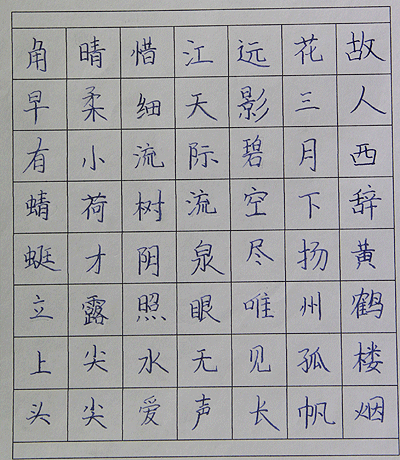 故人西辞黄鹤楼烟
花三月下扬州孤帆
远影碧空尽唯见长
江天际流泉眼无声
惜细流树阴照水爱
晴柔小荷才露尖尖
角早有蜻蜓立上头